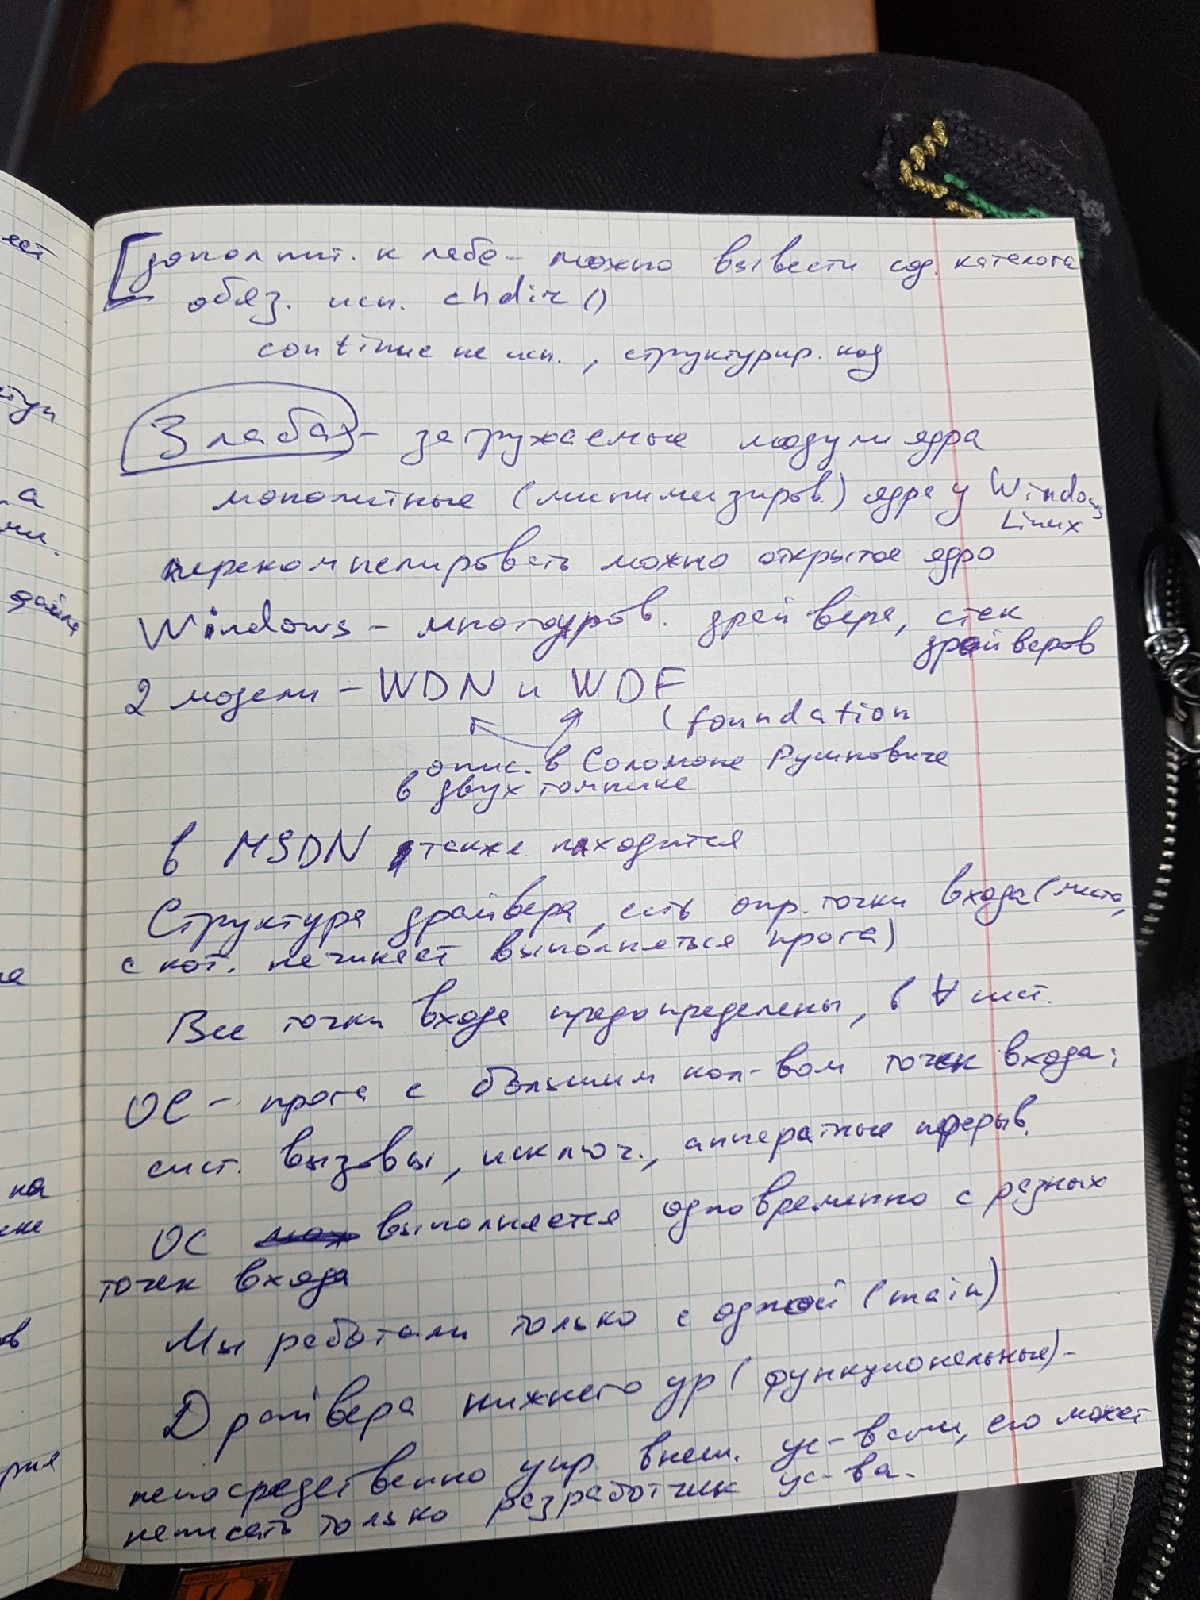 дополнит. к лабе - можно вывести сод. каталога
обяз. исп. chdir()
continue не исп., структурир. код
3 лабая - загружаемые модули ядра
монолитные (минимизиров.) ядра у Windows
Linux
перекомпилировать можно открытое ядро
Windows - многоуров. драйвера, стек
драйверов
2 модели - WDN и WDF
(foundation
опис. в Соломоне Рушиновиче
в двух томнике
в MSDN также находится
Структура драйвера, есть опр. точки входа (место,
с кот. начинает выполняться прога)
Все точки входа предопределены, в ∀ сист.
ОС - прога с большим кол-вом точек входа:
сист. вызовы, исключ., аппаратные прерыв.
ОС выполняется одновременно с разных
точек входа
Мы работали только с одной (main)
Драйвера нижнего ур (функциональные) -
непосредственно упр. внеш. ус-вами, его может
написать только разработчик ус-ва.
ает
ла
файла
на
ске
ов
рия